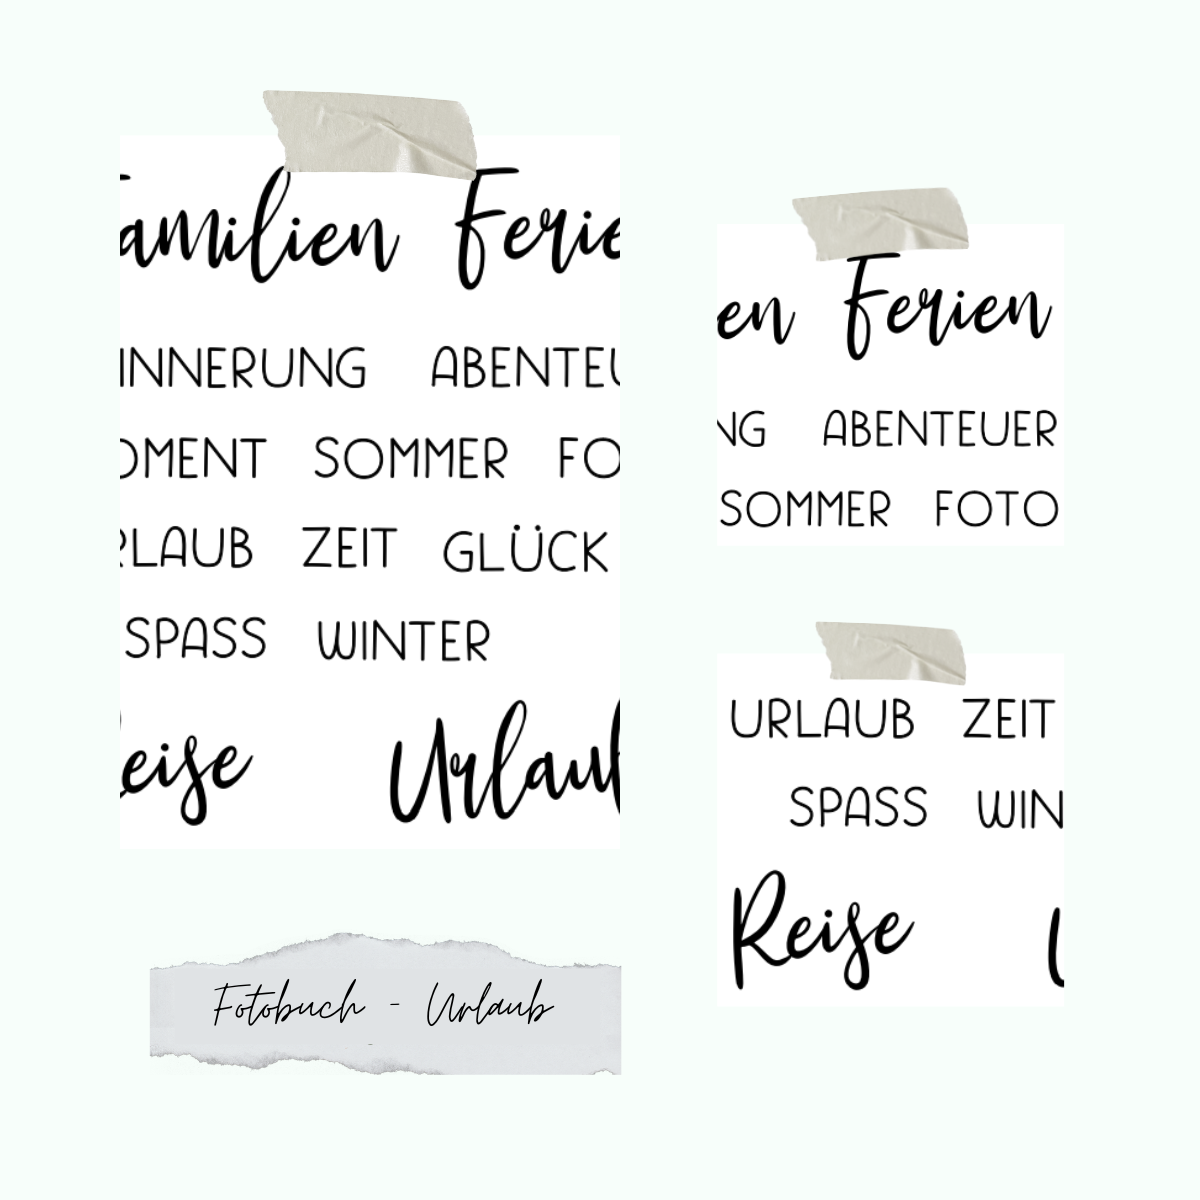 amilien Ferie
INNERUNG ABENTEU
OMENT SOMMER FO
RLAUB ZEIT GLÜCK
SPASS WINTER
eise Urlaub
Fotobuch - Urlaub
en Ferien
NG ABENTEUER
SOMMER FOTO
URLAUB ZEIT
SPASS WIN
Reise U